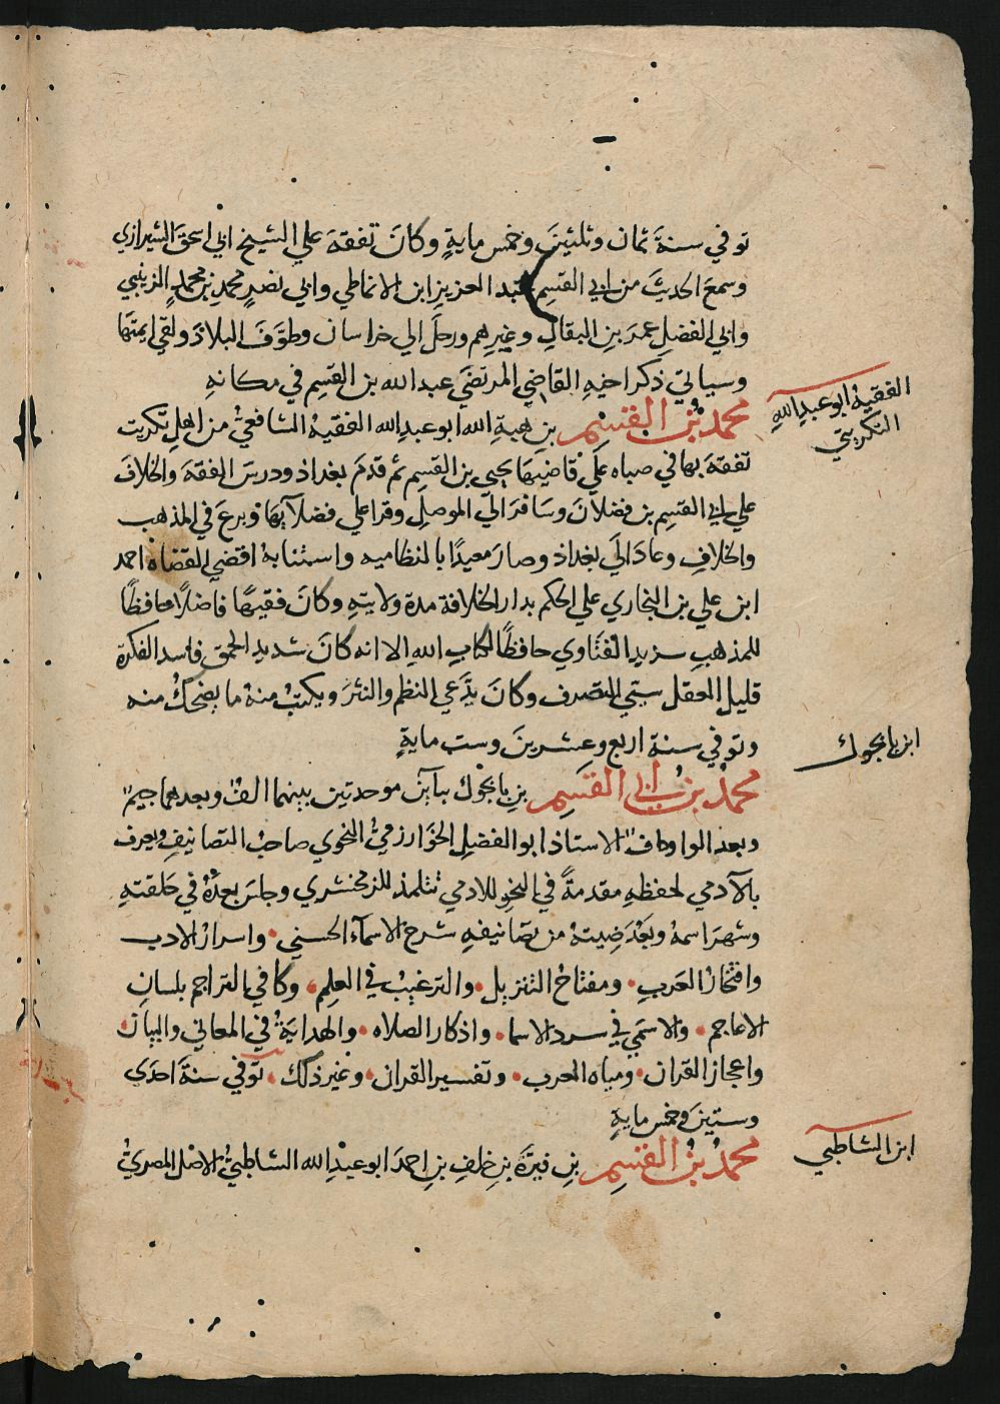 توفي سنة ثمان وثلثين وخمس ماية وكان تفقه علي الشيخ ابي اسحق الشيرازي
وسمع الحديث من ابي القسم عبد العزيز ابن الانماطي وابي نصر محمد بن محمد الزينبي
وابي الفضل عمر بن البقال وغيرهم ورحل الي خراسان وطوف البلاد ولقي ايمتها
وسياتي ذكر اخيه القاضي المرتضي عبد الله بن القسم في مكانه
الفقيه ابو عبد الله
التكريتي
محمد بن القسم بن هبة الله ابو عبد الله الفقيه الشافعي من اهل تكريت
تفقه بها في صباه علي قاضيها يحيي بن القسم ثم قدم بغداذ ودرس الفقه والخلاف
علي ابي القسم بن فضلان وسافر الي الموصل وقرا علي فضلآيها وبرع في المذهب
والخلاف وعاد الي بغداذ وصار معيدًا بالنظاميه واستنابه اقضي القضاه احمد
ابن علي بن البخاري علي الحكم بدار الخلافة مدة ولايته وكان فقيهًا فاضلًا حافظًا
للمذهب سديد الفتاوي حافظًا لكتاب الله الا انه كان شديد الحمق فاسد الفكرة
قليل العقل سيي التصرف وكان يدعي النظم والنثر ويكتب منه ما يضحك منه
وتوفي سنة اربع وعشرين وست ماية
ابن بابجوك
محمد بن ابي القسم بن بابجوك ببآين موحدتين بينهما الف وبعدهما جيم
وبعد الواو كاف الاستاذ ابو الفضل الخوارزمي النحوي صاحب التصانيف ويعرف
بالآدمي لحفظه مقدمة في النحو للادمي تتلمذ للزمخشري وجلس بعده في حلقته
وشهر اسمه وبعد صيته من تصانيفه شرح الاسمآء الحسني • واسرار الادب
وافتخار العرب • ومفتاح التنزيل • والترغيب في العلم • وكافي التراجم بلسان
الاعاجم • والاسمي في سرد الاسما • واذكار الصلاه • والهداية في المعاني والبيان •
واعجاز القران • ومياه العرب • وتفسير القران • وغير ذلك • توفي سنة احدي
وستين وخمس ماية
ابن الشاطبي
محمد بن القسم بن فيرة بن خلف بن احمد ابو عبد الله الشاطبي الاصل المصري